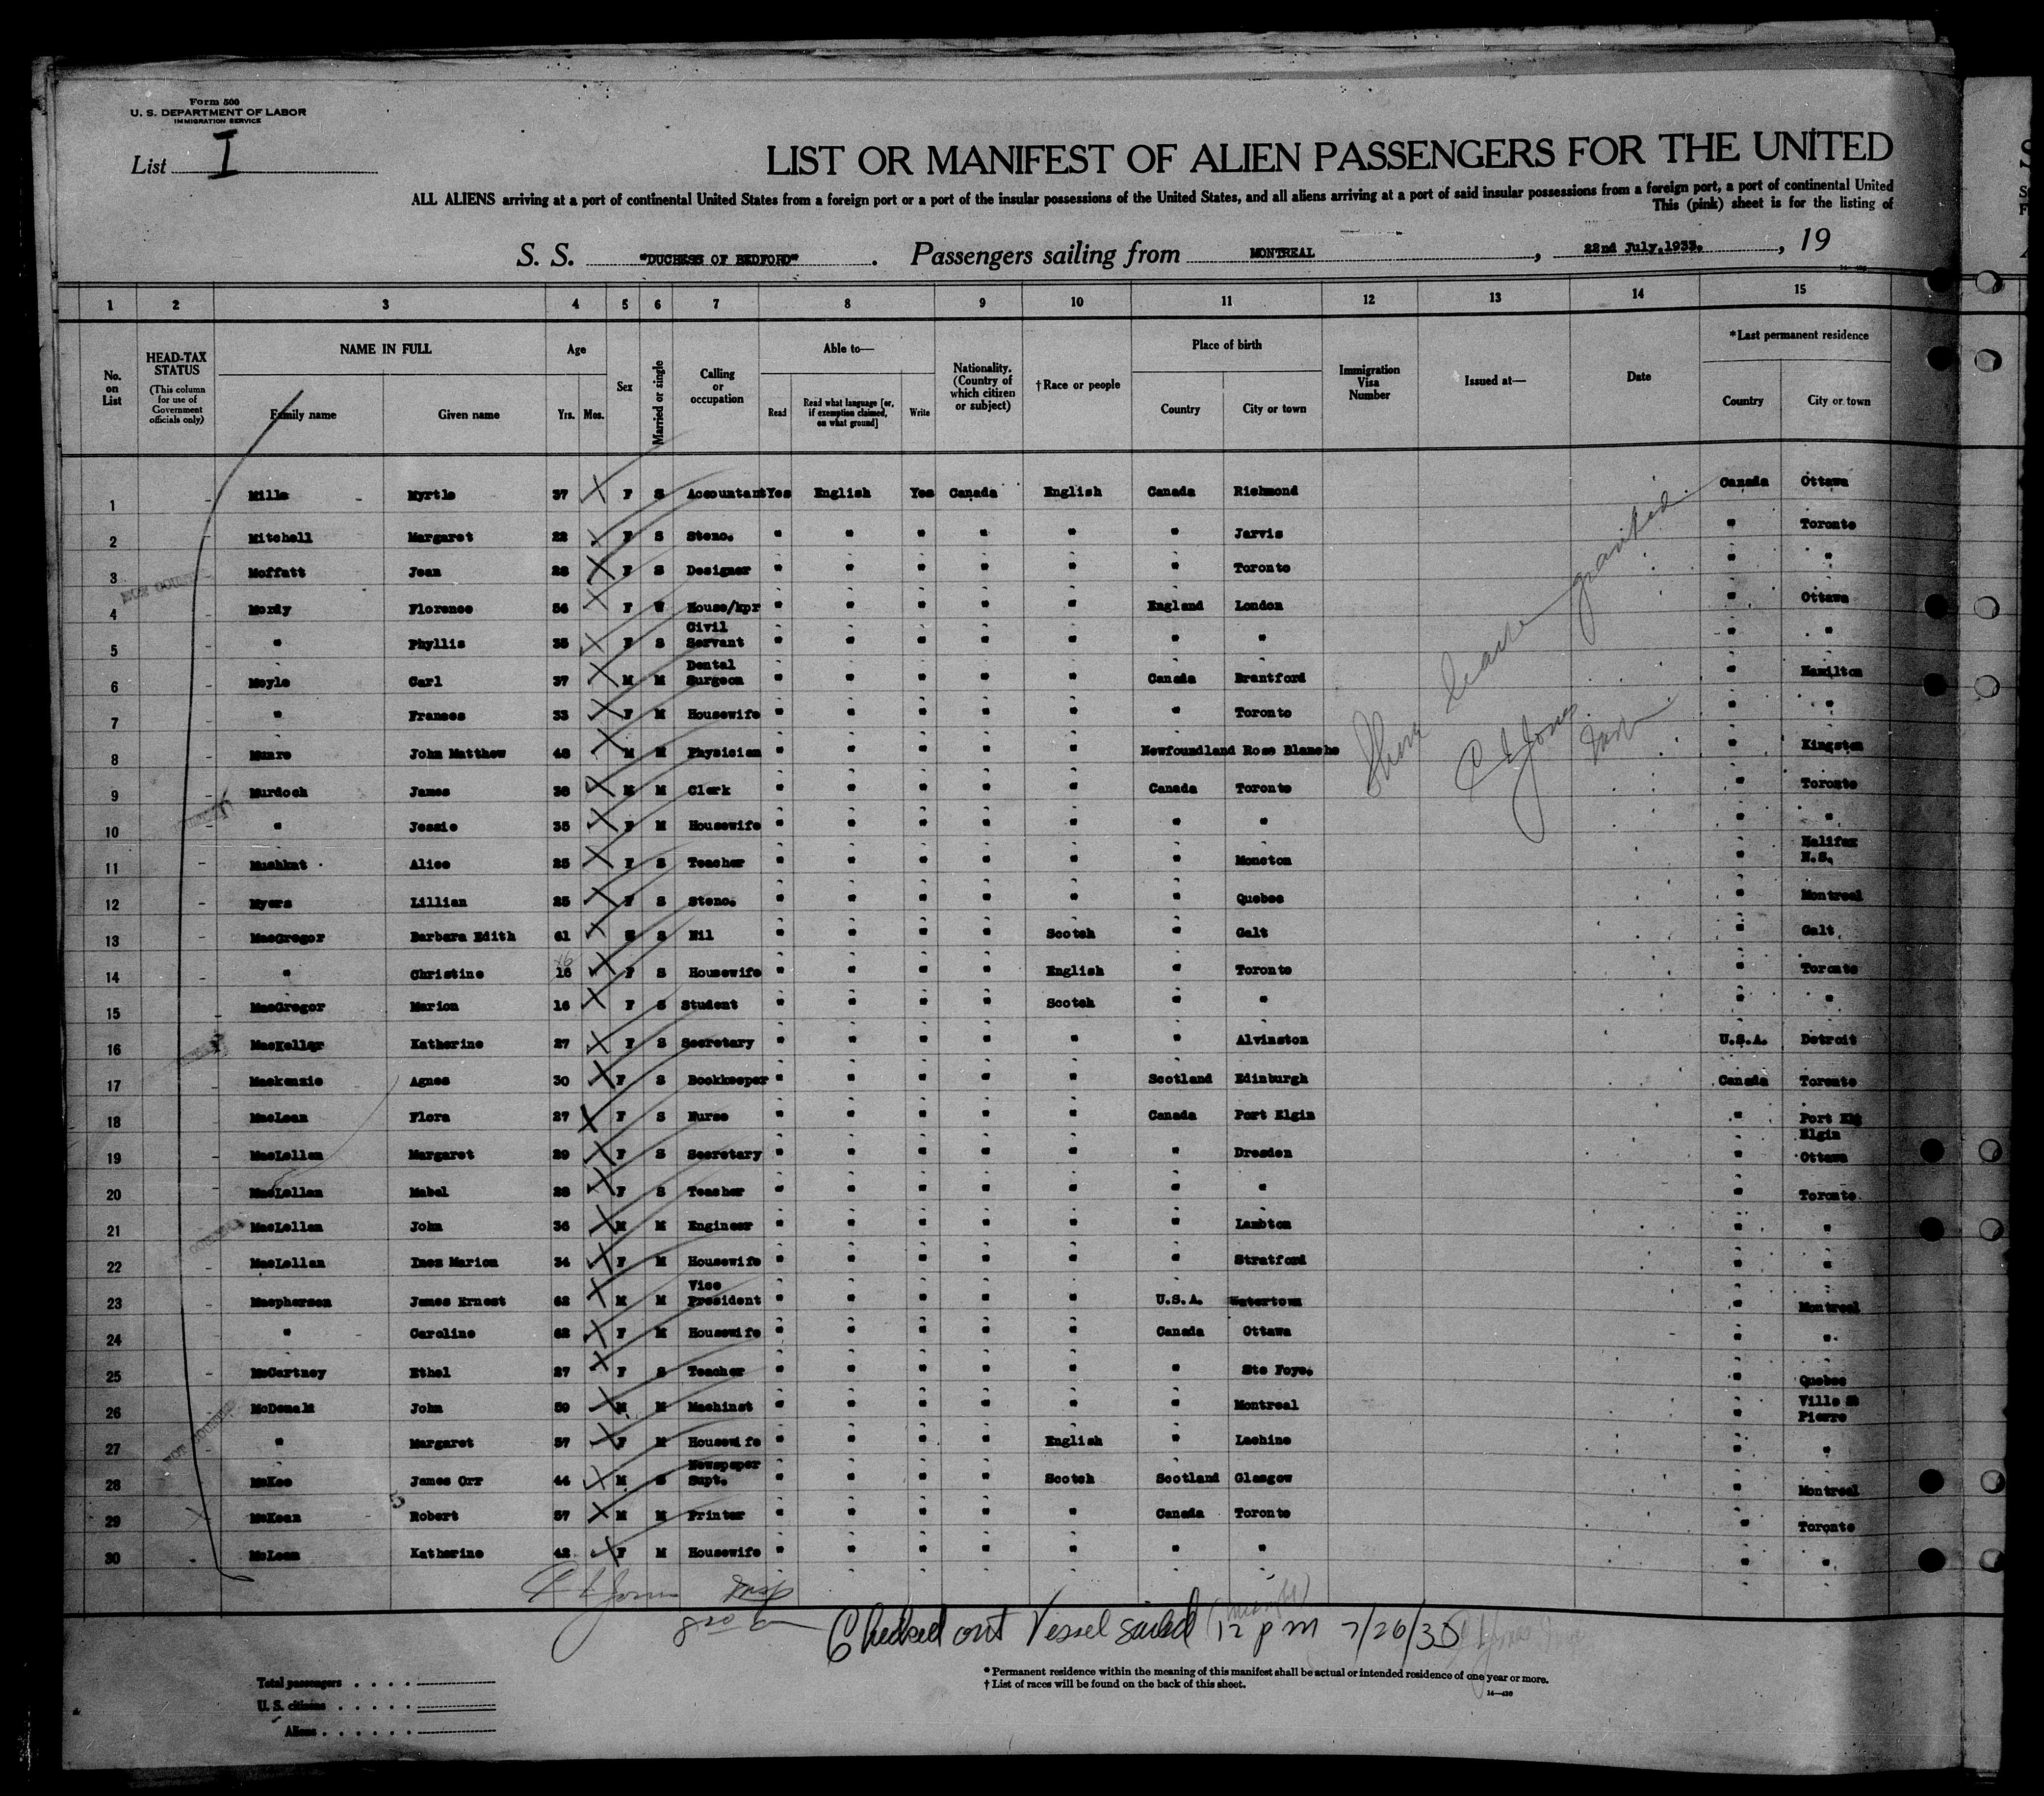 Form 500
U. S. DEPARTMENT OF LABOR
IMMIGRATION SERVICE
List I
LIST OR MANIFEST OF ALIEN PASSENGERS FOR THE UNITED
ALL ALIENS arriving at a port of continental United States from a foreign port or a port of the insular possessions of the United States, and all aliens arriving at a port of said insular possessions from a foreign port, a port of continental United
This (pink) sheet is for the listing of
S. S. "DUCHESS OF BEDFORD". Passengers sailing from MONTREAL, 22nd July,1933., 19
1 2 3 4 5 6 7 8 9 10 11 12 13 14 15
No. on List
HEAD-TAX STATUS (This column for use of Government officials only)
NAME IN FULL
Family name Given name
Age
Yrs. Mos.
Sex
Married or single
Calling or occupation
Able to—
Read
Read what language [or, if exemption claimed, on what ground]
Write
Nationality. (Country of which citizen or subject)
†Race or people
Place of birth
Country City or town
Immigration Visa Number
Issued at—
Date
*Last permanent residence
Country City or town
1 Mills Myrtle 37 F S Accountant Yes English Yes Canada English Canada Richmond Canada Ottawa
2 Mitchell Margaret 22 F S Steno. " " " " " " Jarvis " Toronto
3 Moffatt Jean 28 F S Designer " " " " " " Toronto " "
4 Mordy Florence 56 F W House/kpr " " " " " England London " Ottawa
5 " Phyllis 35 F S Civil Servant " " " " " " " " "
6 Moyle Carl 37 M M Dental Surgeon " " " " " Canada Brantford " Hamilton
7 " Frances 33 F M Housewife " " " " " " Toronto " "
8 Munro John Matthew 48 M M Physician " " " " " Newfoundland Rose Blanche " Kingston
9 Murdoch James 38 M M Clerk " " " " " Canada Toronto " Toronto
10 " Jessie 35 F M Housewife " " " " " " " " "
11 Mushkat Alice 25 F S Teacher " " " " " " Moncton " Halifax N.S.
12 Myers Lillian 25 F S Steno. " " " " " " Quebec " Montreal
13 MacGregor Barbara Edith 61 S Nil " " " " Scotch " Galt " Galt
14 " Christine 16 F S Housewife " " " " English " Toronto " Toronto
15 MacGregor Marion 16 F S Student " " " " Scotch " " " "
16 MacKellar Katherine 27 F S Secretary " " " " " " Alvinston U.S.A. Detroit
17 Mackenzie Agnes 30 F S Bookkeeper " " " " " Scotland Edinburgh Canada Toronto
18 MacLean Flora 27 F S Nurse " " " " " Canada Port Elgin " Port Elg Elgin
19 MacLellan Margaret 29 F S Secretary " " " " " " Dresden " Ottawa
20 MacLellan Mabel 28 F S Teacher " " " " " " " " Toronto
21 MacLellan John 36 M M Engineer " " " " " " Lambton " "
22 MacLellan Inez Marion 34 F M Housewife " " " " " " Stratford " "
23 Macpherson James Ernest 62 M M Vice President " " " " " U.S.A. Watertown " Montreal
24 " Caroline 62 F M Housewife " " " " " Canada Ottawa " "
25 McCartney Ethel 27 F S Teacher " " " " " " Ste Foye. " Quebec
26 McDonald John 59 M M Machinst " " " " " " Montreal " Ville St Pierre
27 " Margaret 57 F M Housewife " " " " English " Lachine " "
28 McKee James Orr 44 M S Newspaper Supt. " " " " Scotch Scotland Glasgow " Montreal
29 McKean Robert 57 M M Printer " " " " " Canada Toronto " Toronto
30 McLean Katherine 42 F M Housewife " " " " " " " " "
Shore leave granted
C I Jones
Insp
C I Jones Insp
Checked out Vessel sailed 12 p m 7/26/33
*Permanent residence within the meaning of this manifest shall be actual or intended residence of one year or more.
†List of races will be found on the back of this sheet.
Total passengers
U. S. citizens
Aliens